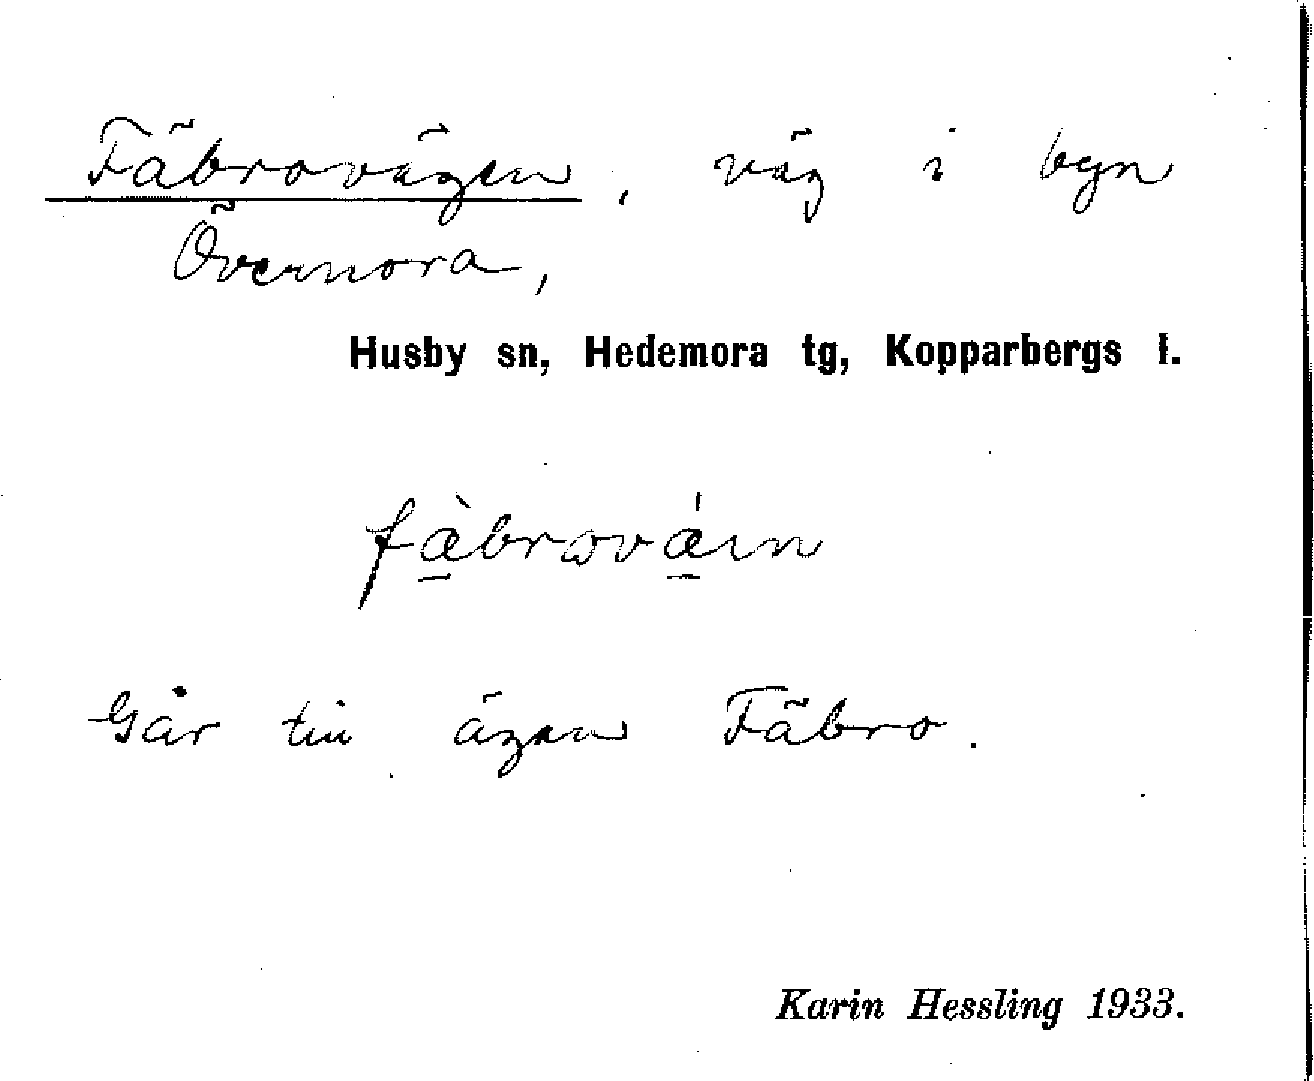 Fäbrovägen, väg i byn
Övernora,
Husby sn, Hedemora tg, Kopparbergs l.
fà̱brωvá̱ın
Går till ägan Fäbro.
Karin Hessling 1933.